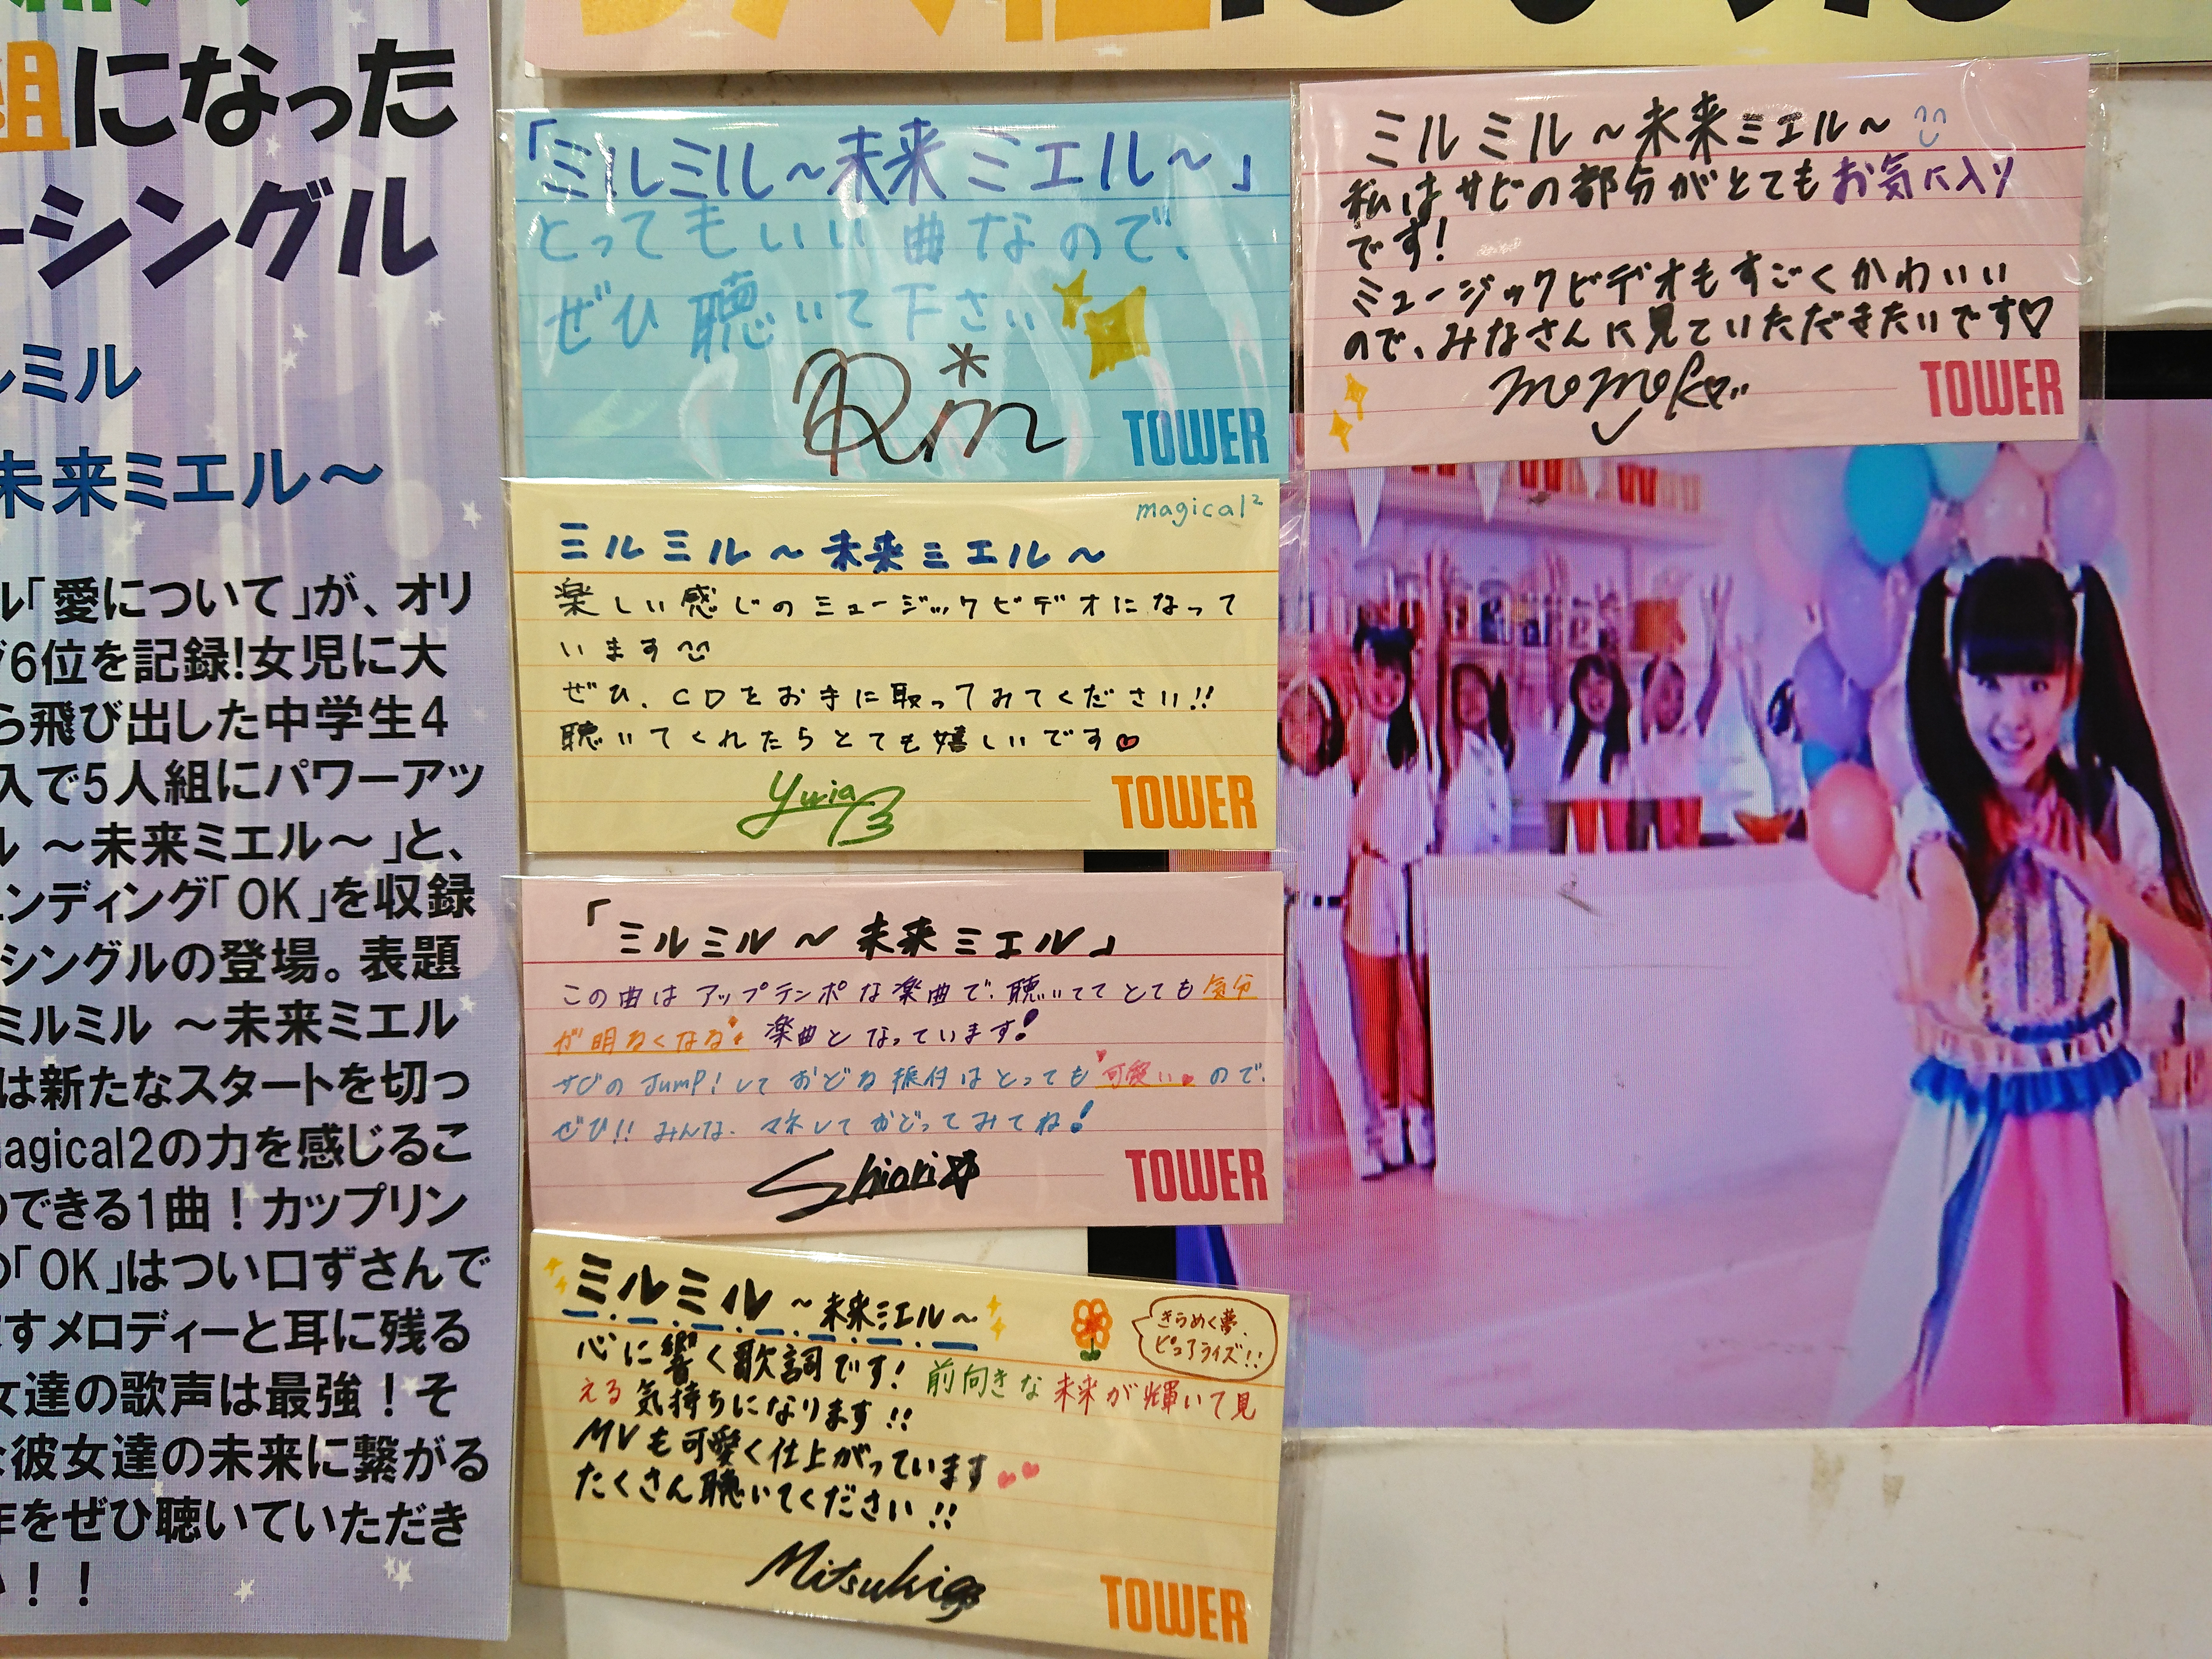 組になった
ーシングル
ルミル
未来ミエル～
ル「愛について」が、オリ
6位を記録!女児に大
ら飛び出した中学生4
入で5人組にパワーアッ
ル ～未来ミエル～」と、
ンディング「OK」を収録
シングルの登場。表題
ミルミル ～未来ミエル
は新たなスタートを切っ
magical2の力を感じるこ
のできる1曲！カップリン
の「OK」はつい口ずさんで
すメロディーと耳に残る
女達の歌声は最強！そ
な彼女達の未来に繋がる
作をぜひ聴いていただき
い！！
「ミルミル～未来ミエル～」
とってもいい曲なので、
ぜひ聴いて下さい
Rin
TOWER
ミルミル～未来ミエル～
私はサビの部分がとてもお気に入り
です!
ミュージックビデオもすごくかわいい
ので、みなさんに見ていただきたいです♡
momoko
TOWER
magical²
ミルミル～未来ミエル～
楽しい感じのミュージックビデオになって
います
ぜひ、CDをお手に取ってみてください!!
聴いてくれたらとても嬉しいです♡
Yuria
TOWER
「ミルミル～未来ミエル」
この曲はアップテンポな楽曲で、聴いてて とても気分
が明るくなる 楽曲となっています!
サビの Jump!して おどる振付はとっても可愛いので、
ぜひ!! みんな、マネしておどってみてね!
Shiori☆
TOWER
ミルミル～未来ミエル～
きらめく夢、
ピュアライズ!!
心に響く歌詞です! 前向きな未来が輝いて見
える気持ちになります!!
MVも可愛く仕上がっています
たくさん聴いてください!!
Mitsuki
TOWER